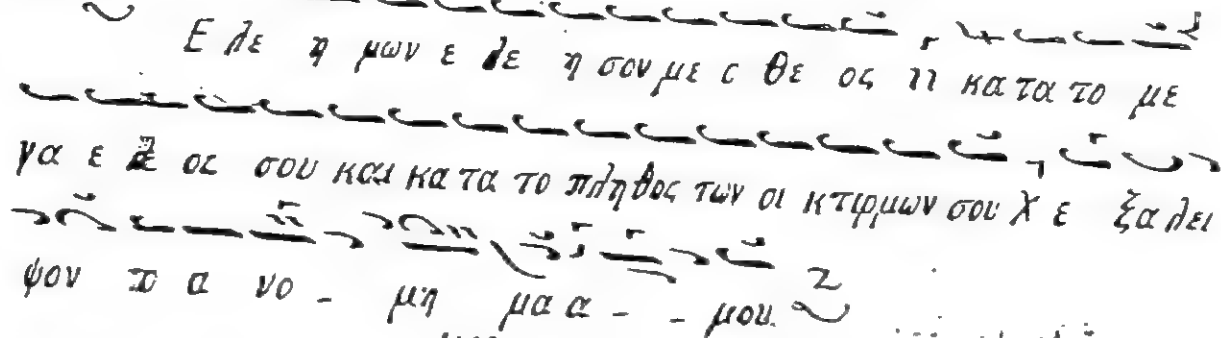 Ε λε η μων ε λε η σον με ο θε ος π κα τα το με
γα ε λ ος σου και κα τα το πληθος των οι κτιρμων σου χ ε ξα λει
ψον το α νο - μη μα α - - μου.